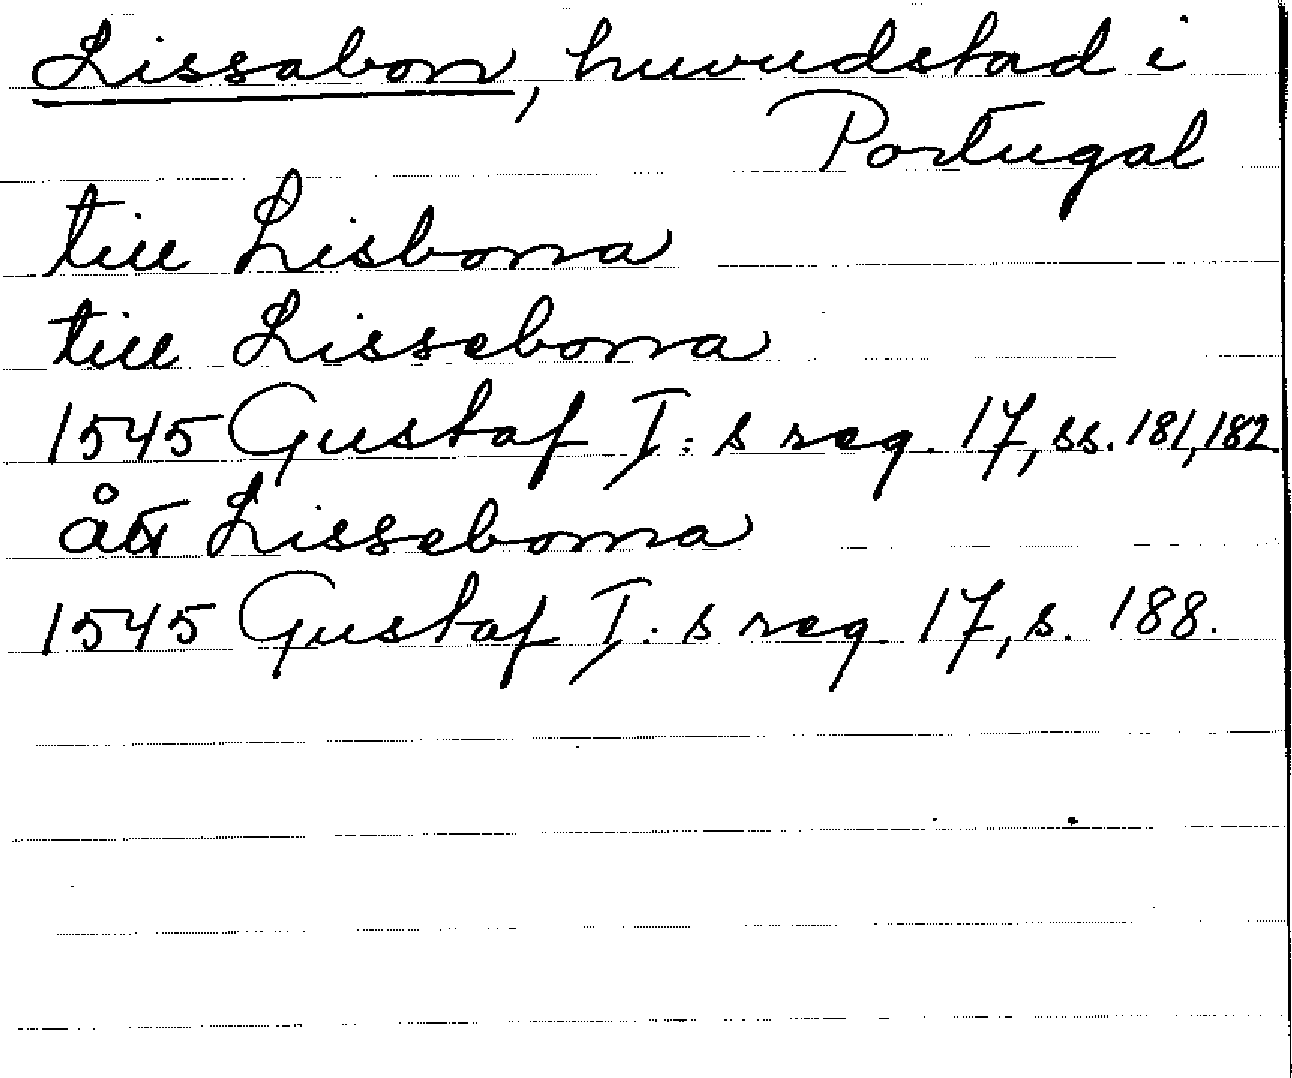 Lissabon, huvudstad i
Portugal
till Lisbona
till Lissebona
1545 Gustaf I:s reg. 17, ss. 181, 182
ått Lissebona
1545 Gustaf I:s reg 17, s. 188.